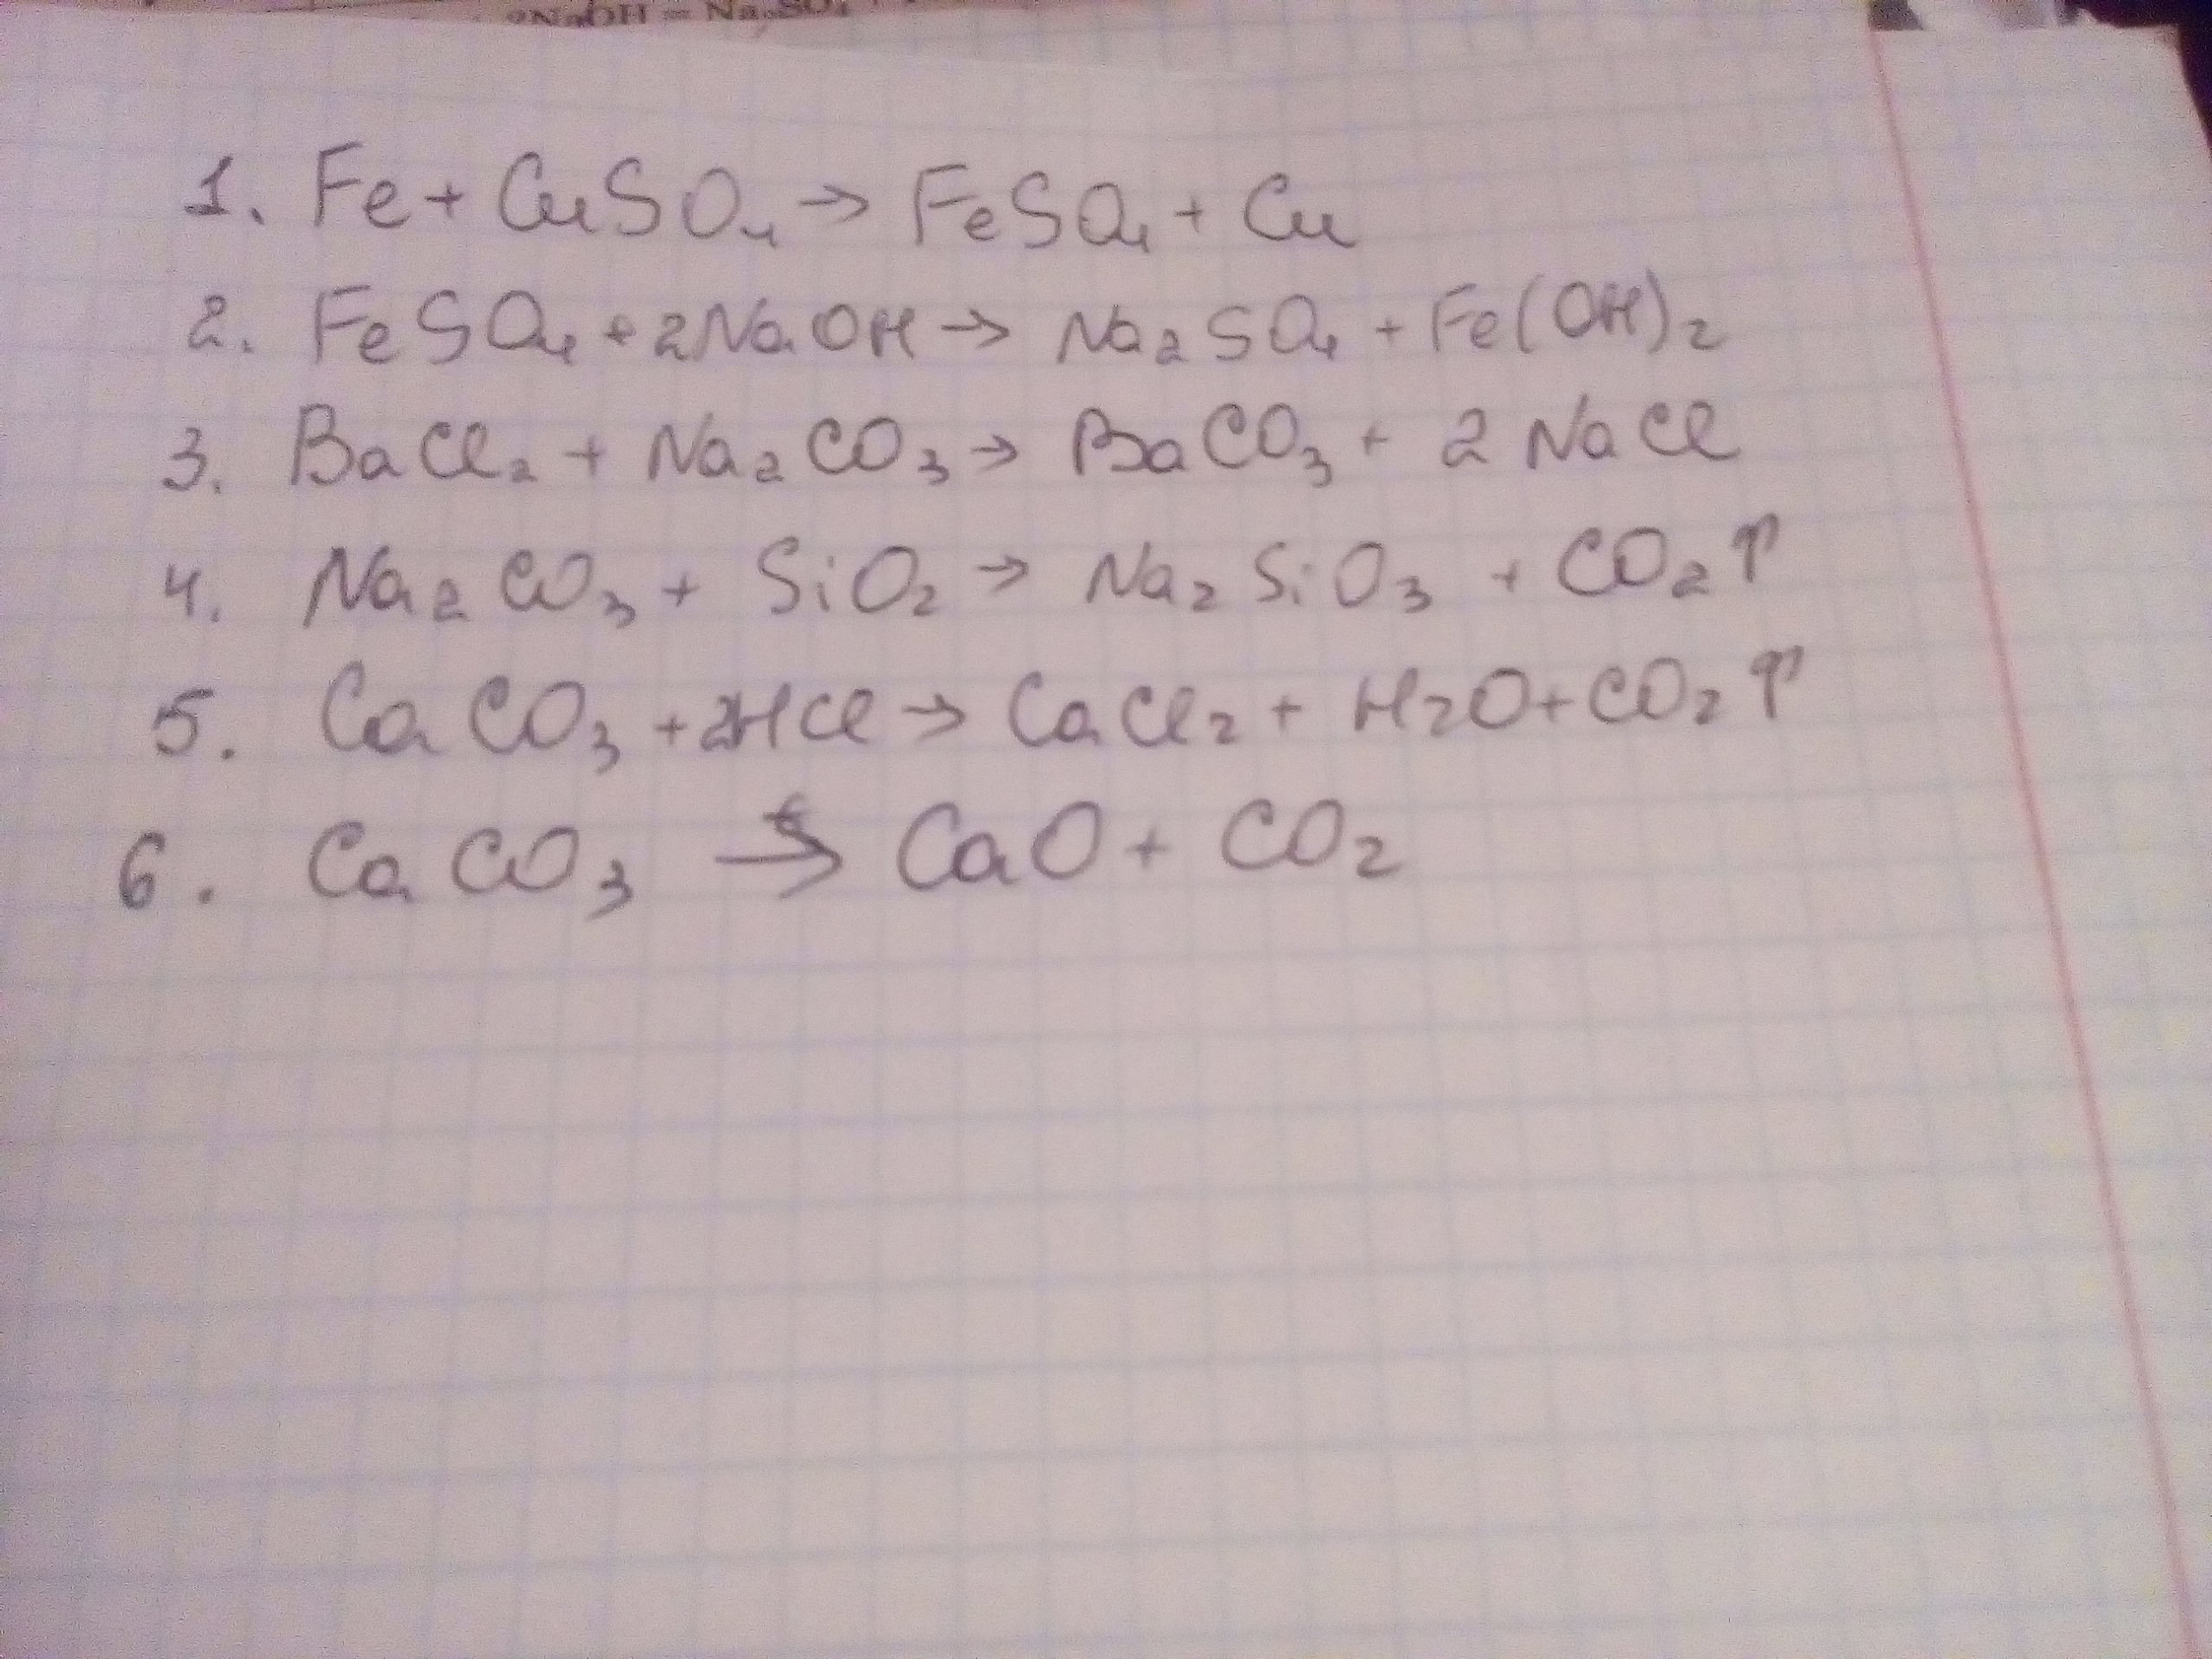 2NaOH = Na₂SO₄
1. Fe + CuSO₄ → FeSO₄ + Cu
2. FeSO₄ + 2NaOH → Na₂SO₄ + Fe(OH)₂
3. BaCl₂ + Na₂CO₃ → BaCO₃ + 2NaCl
4. Na₂CO₃ + SiO₂ → Na₂SiO₃ + CO₂↑
5. CaCO₃ + 2HCl → CaCl₂ + H₂O + CO₂↑
6. CaCO₃ →ᵗ CaO + CO₂